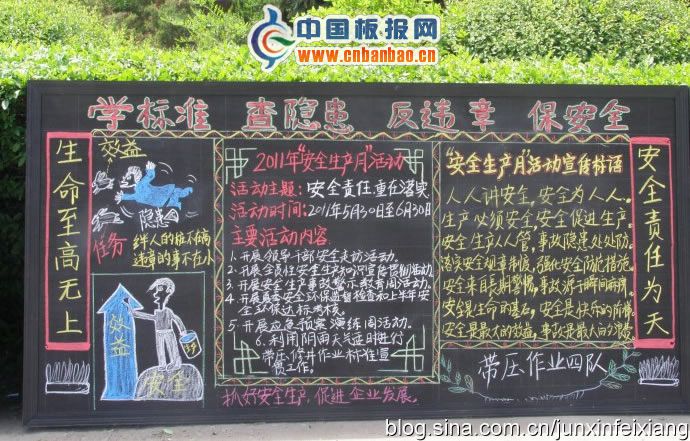 中国板报网
www.cnbanbao.cn
学标准 查隐患 反违章 保安全
生命至高无上
效益
隐患
任务
绊人的桩不在高
违章的事不在小
效益
安全
2011年“安全生产月”活动
活动主题：安全责任重在落实
活动时间：2011年5月30日至6月30日
主要活动内容：
1、开展领导干部安全走访活动。
2、开展全员性安全生产知识宣传惯例活动
3、开展安全生产事故警示教育周活动。
4、开展夏季安全环保监督检查和上半年安
全环保达标考核。
5、开展应急预案演练周活动。
6、利用阴雨天气适时进行
带压修井作业标准宣
贯工作。
抓好安全生产，促进企业发展。
“安全生产月”活动宣传标语
人人讲安全，安全为人人。
生产必须安全，安全促进生产。
安全生产人人管，事故隐患处处防。
落实安全规章制度，强化安全防范措施。
安全来自长期警惕，事故源于瞬间麻痹。
安全是生命的基石，安全是快乐的阶梯。
安全是最大的效益，事故是最大的浪费。
带压作业四队
安全责任为天
blog.sina.com.cn/junxinfeixiang